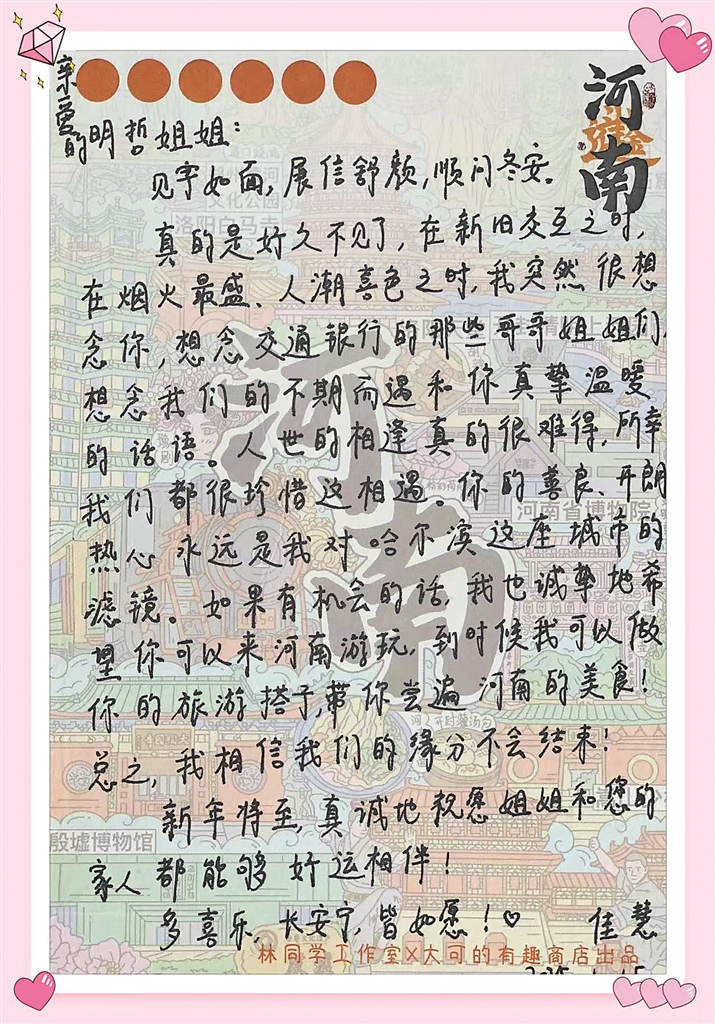 亲爱的明哲姐姐：
见字如面，展信舒颜，顺问冬安。
真的是好久不见了，在新旧交互之时，
在烟火最盛、人潮喜色之时，我突然很想
念你，想念交通银行的那些哥哥姐姐们，
想念我们的不期而遇和你真挚温暖
的话语。人世的相逢真的很难得，所幸
我们都很珍惜这相遇。你的善良、开朗
热心永远是我对哈尔滨这座城市的
滤镜。如果有机会的话，我也诚挚地希
望你可以来河南游玩，到时候我可以做
你的旅游搭子，带你尝遍河南的美食！
总之，我相信我们的缘分不会结束！
新年将至，真诚地祝愿姐姐和您的
家人都能够好运相伴！
多喜乐，长安宁，皆如愿！♡ 佳慧
林同学工作室×大可的有趣商店出品
河南
河南
文化公园
洛阳白马寺
河南省博物院
开封灌汤包
殷墟博物馆